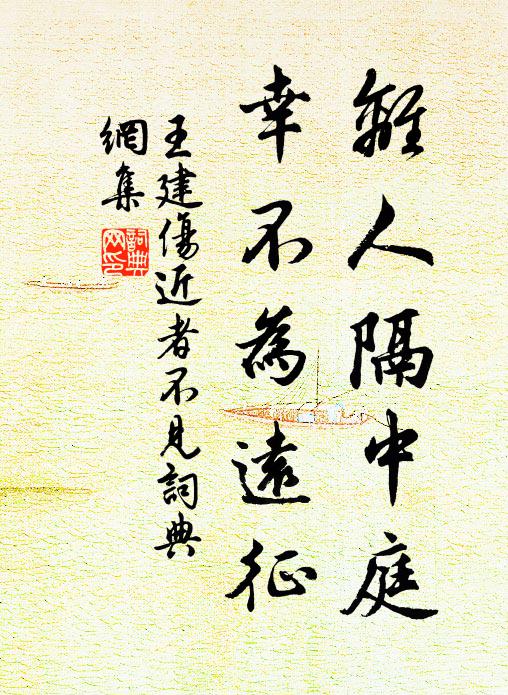 離人隔中庭
幸不為遠征
王建傷近者不見詞典
網集
詞典
網印